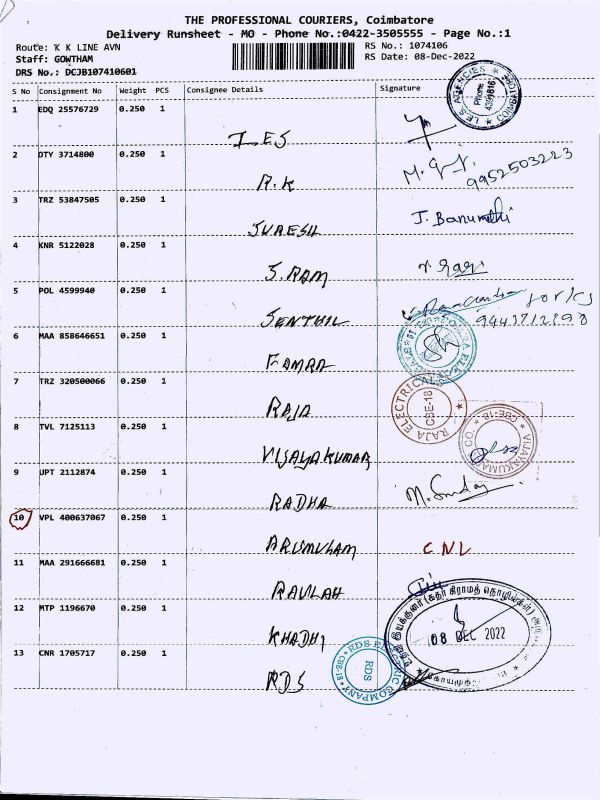 THE PROFESSIONAL COURIERS, Coimbatore
Delivery Runsheet - MO - Phone No.:0422-3505555 - Page No.:1
Route: K K LINE AVN
RS No.: 1074106
Staff: GOWTHAM
RS Date: 08-Dec-2022
DRS No.: DCJB107410601
S No Consignment No Weight PCS Consignee Details Signature
I.E.S AGENCIES Phone 4391816 COIMBATORE
1 EDQ 25576729 0.250 1
I ES
2 DTY 3714800 0.250 1
R.K
9952503223
3 TRZ 53847505 0.250 1
SURESH J. Banumathi
4 KNR 5122028 0.250 1
S.RAM
5 POL 4599940 0.250 1
SENTHIL
6 MAA 858646651 0.250 1
7 TRZ 320500066 0.250 1
RAJA
RAJA ELECTRICAL CBE-18
8 TVL 7125113 0.250 1
VIJAYAKUMAR
VIJAYAKUMAR CO. CBE-18
9 UPT 2112874 0.250 1
RADHA
10 VPL 400637067 0.250 1
ARUMUGAM CNL
11 MAA 291666681 0.250 1
12 MTP 1196670 0.250 1
KHADHI
08 DEC 2022
13 CNR 1705717 0.250 1
RDS
RDS ELECTRIC COMPANY CBE-18 RDS